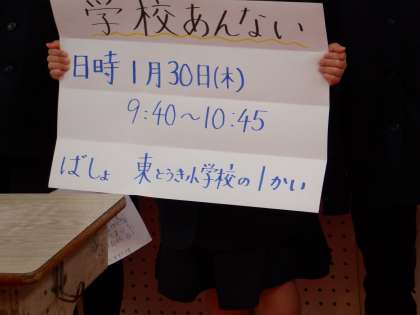 学校あんない
日時 1月30日(木)
9:40～10:45
ばしょ 東とうき小学校の1かい